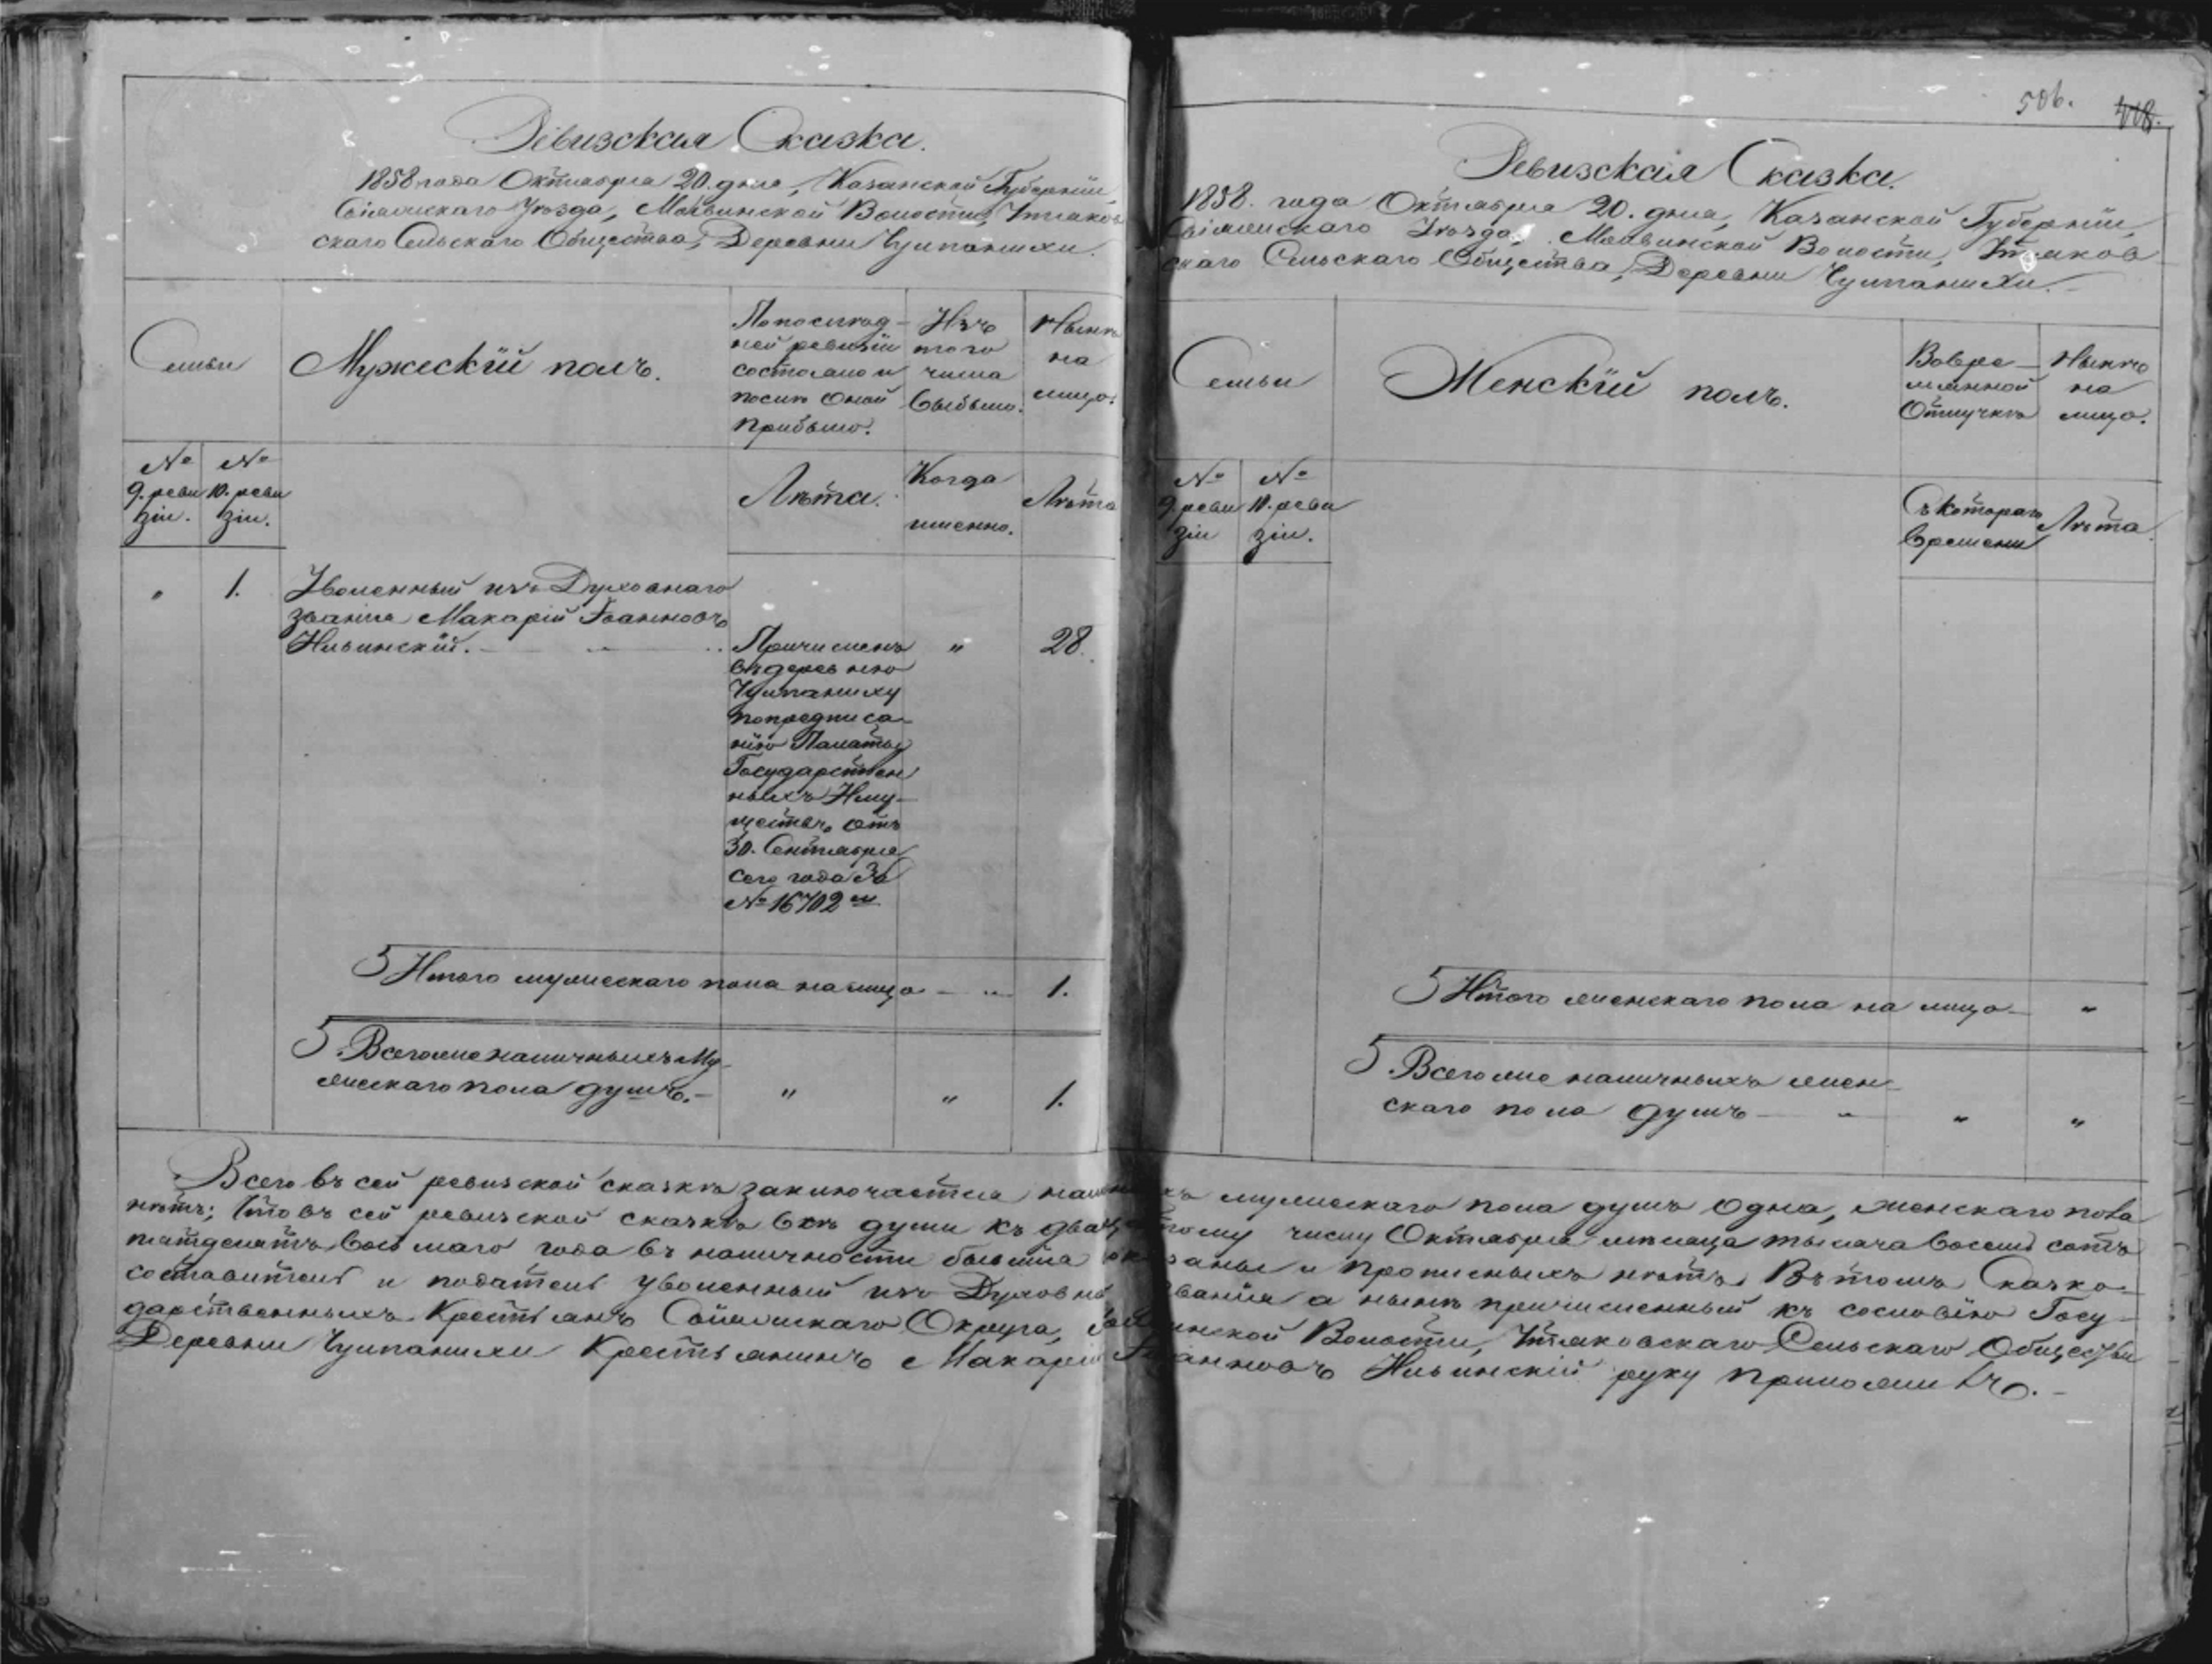 Ревизская Сказка.
1858 года Октября 20. дня, Казанской Губернiи,
Свiяжскаго Уѣзда, Волости, Утяков
скаго Сельскаго Общества, Деревни Чулпанихи.
Семьи
Мужескiй полъ.
По послѣд-
ней ревизiи
состояло и
послѣ оной
прибыло.
Изъ
того
числа
выбыло.
Нынѣ
на
лицо.
№ 9. реви
зiи.
№ 10. реви
зiи.
Лѣта.
Когда
именно.
Лѣта
"
1.
Уволенный изъ Духовнаго
званiя Макарiй Iоанновъ
Ильинскiй.
Причисленъ
въ деревню
Чулпаниху
по предписа-
нiю Палаты
Государствен
ныхъ Иму-
ществъ отъ
30. Сентября
сего года за
№ 16702 м
"
28.
Итого мужескаго пола на лицо
1.
Всего же наличныхъ му-
жескаго пола душъ.
"
"
1.
506.
Ревизская Сказка.
1858. года Октября 20. дня, Казанской Губернiи,
Свiяжскаго Уѣзда, Волости, Утяков
скаго Сельскаго Общества, Деревни Чулпанихи.
Семьи
Женскiй полъ.
Во вре-
менной
Отлучкѣ
Нынѣ
на
лицо.
№ 9. реви
зiи
№ 10. реви
зiи.
Съ котораго
времени
Лѣта.
Итого женскаго пола на лицо
"
Всего же наличныхъ жен-
скаго пола душъ
"
"
Всего въ сей ревизской сказкѣ заключается мужескаго пола душъ одна, женскаго пола
нѣтъ; Что въ сей ревизской сказкѣ всѣ души къ двадцатому числу Октября мѣсяца тысяча восемь сотъ
пятдесятъ восьмаго года въ наличности бывшiя показаны и прописныхъ нѣтъ. Въ томъ Сказко-
составитель и податель уволенный изъ Духовнаго званiя а нынѣ причисленный къ сословiю Госу-
дарственныхъ Крестьянъ Свiяжскаго Округа, Волости, Утяковскаго Сельскаго Общества
Деревни Чулпанихи Крестьянинъ Макарiй Iоанновъ Ильинскiй руку приложилъ.